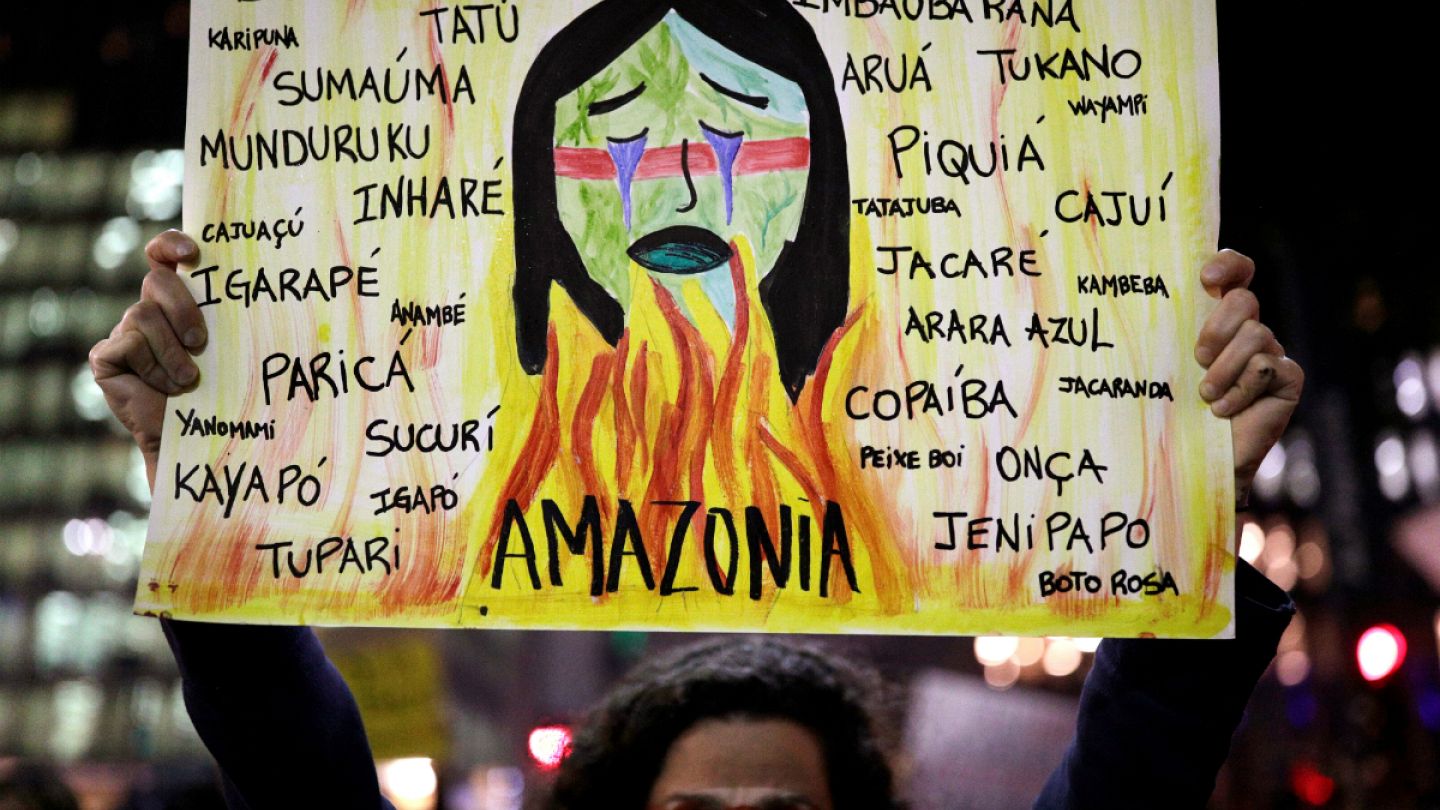 KARIPUNA
TATÚ
SUMAÚMA
MUNDURUKU
INHARÉ
CAJUAÇÚ
IGARAPÉ
ANAMBÉ
PARICÁ
YANOMAMI
SUCURÍ
KAYAPÓ
IGAPÓ
TUPARI
AMAZONIA
IMBAÚBA RANA
ARUÁ
TUKANO
WAYAMPI
PIQUIÁ
TATAJUBA
CAJUÍ
JACARÉ
KAMBEBA
ARARA AZUL
COPAÍBA
JACARANDA
PEIXE BOI
ONÇA
JENIPAPO
BOTO ROSA